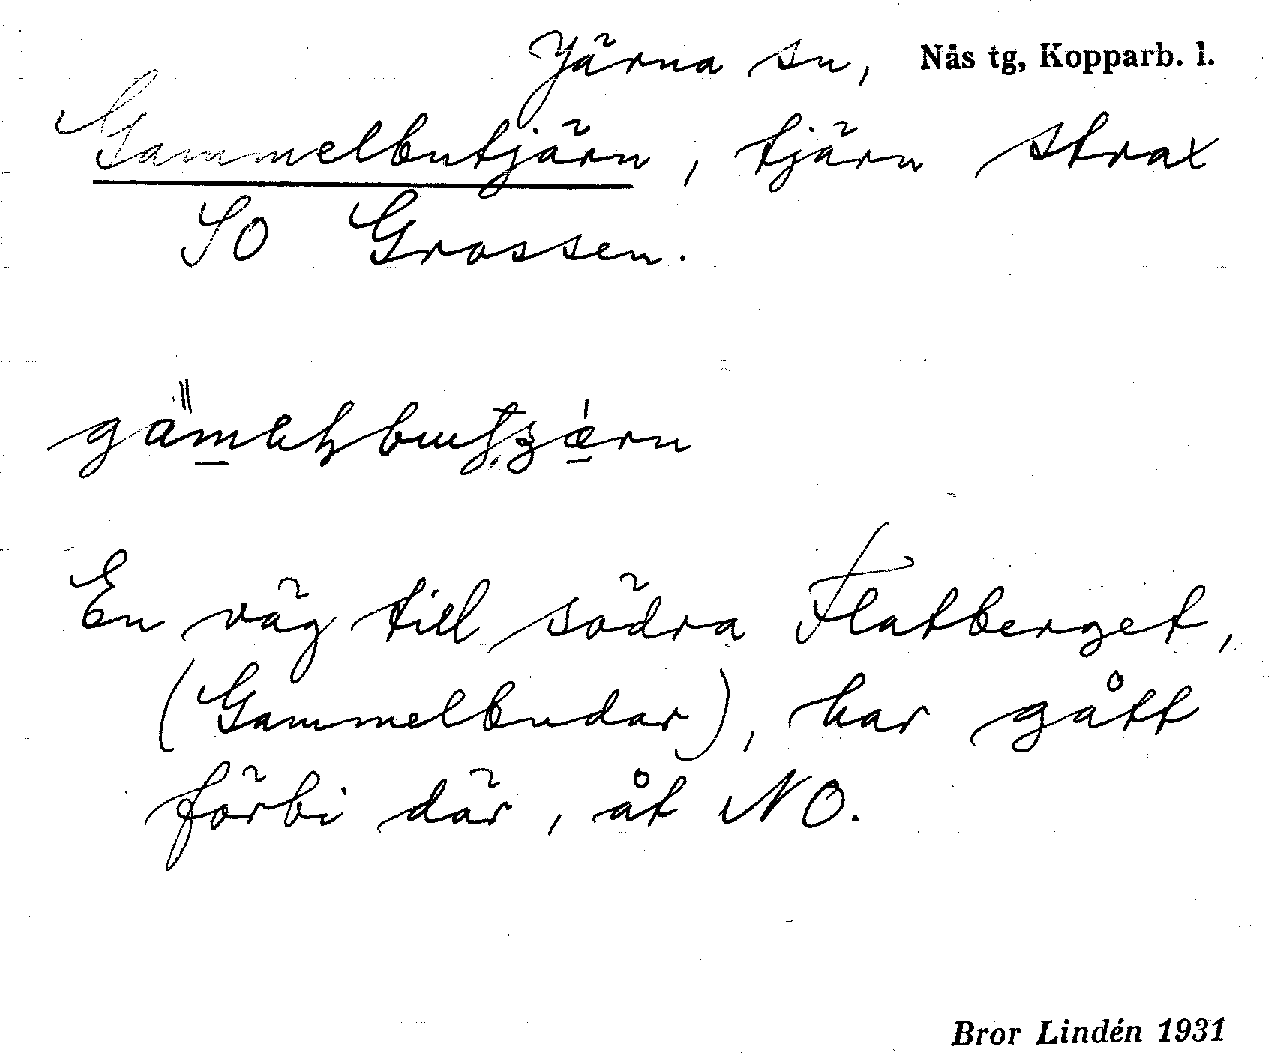 Järna sn, Nås tg, Kopparb. l.
Gammelbutjärn, tjärn strax
SO Grossen.
En väg till södra Flatberget,
(Gammelbudar), har gått
förbi där, åt NO.
Bror Lindén 1931